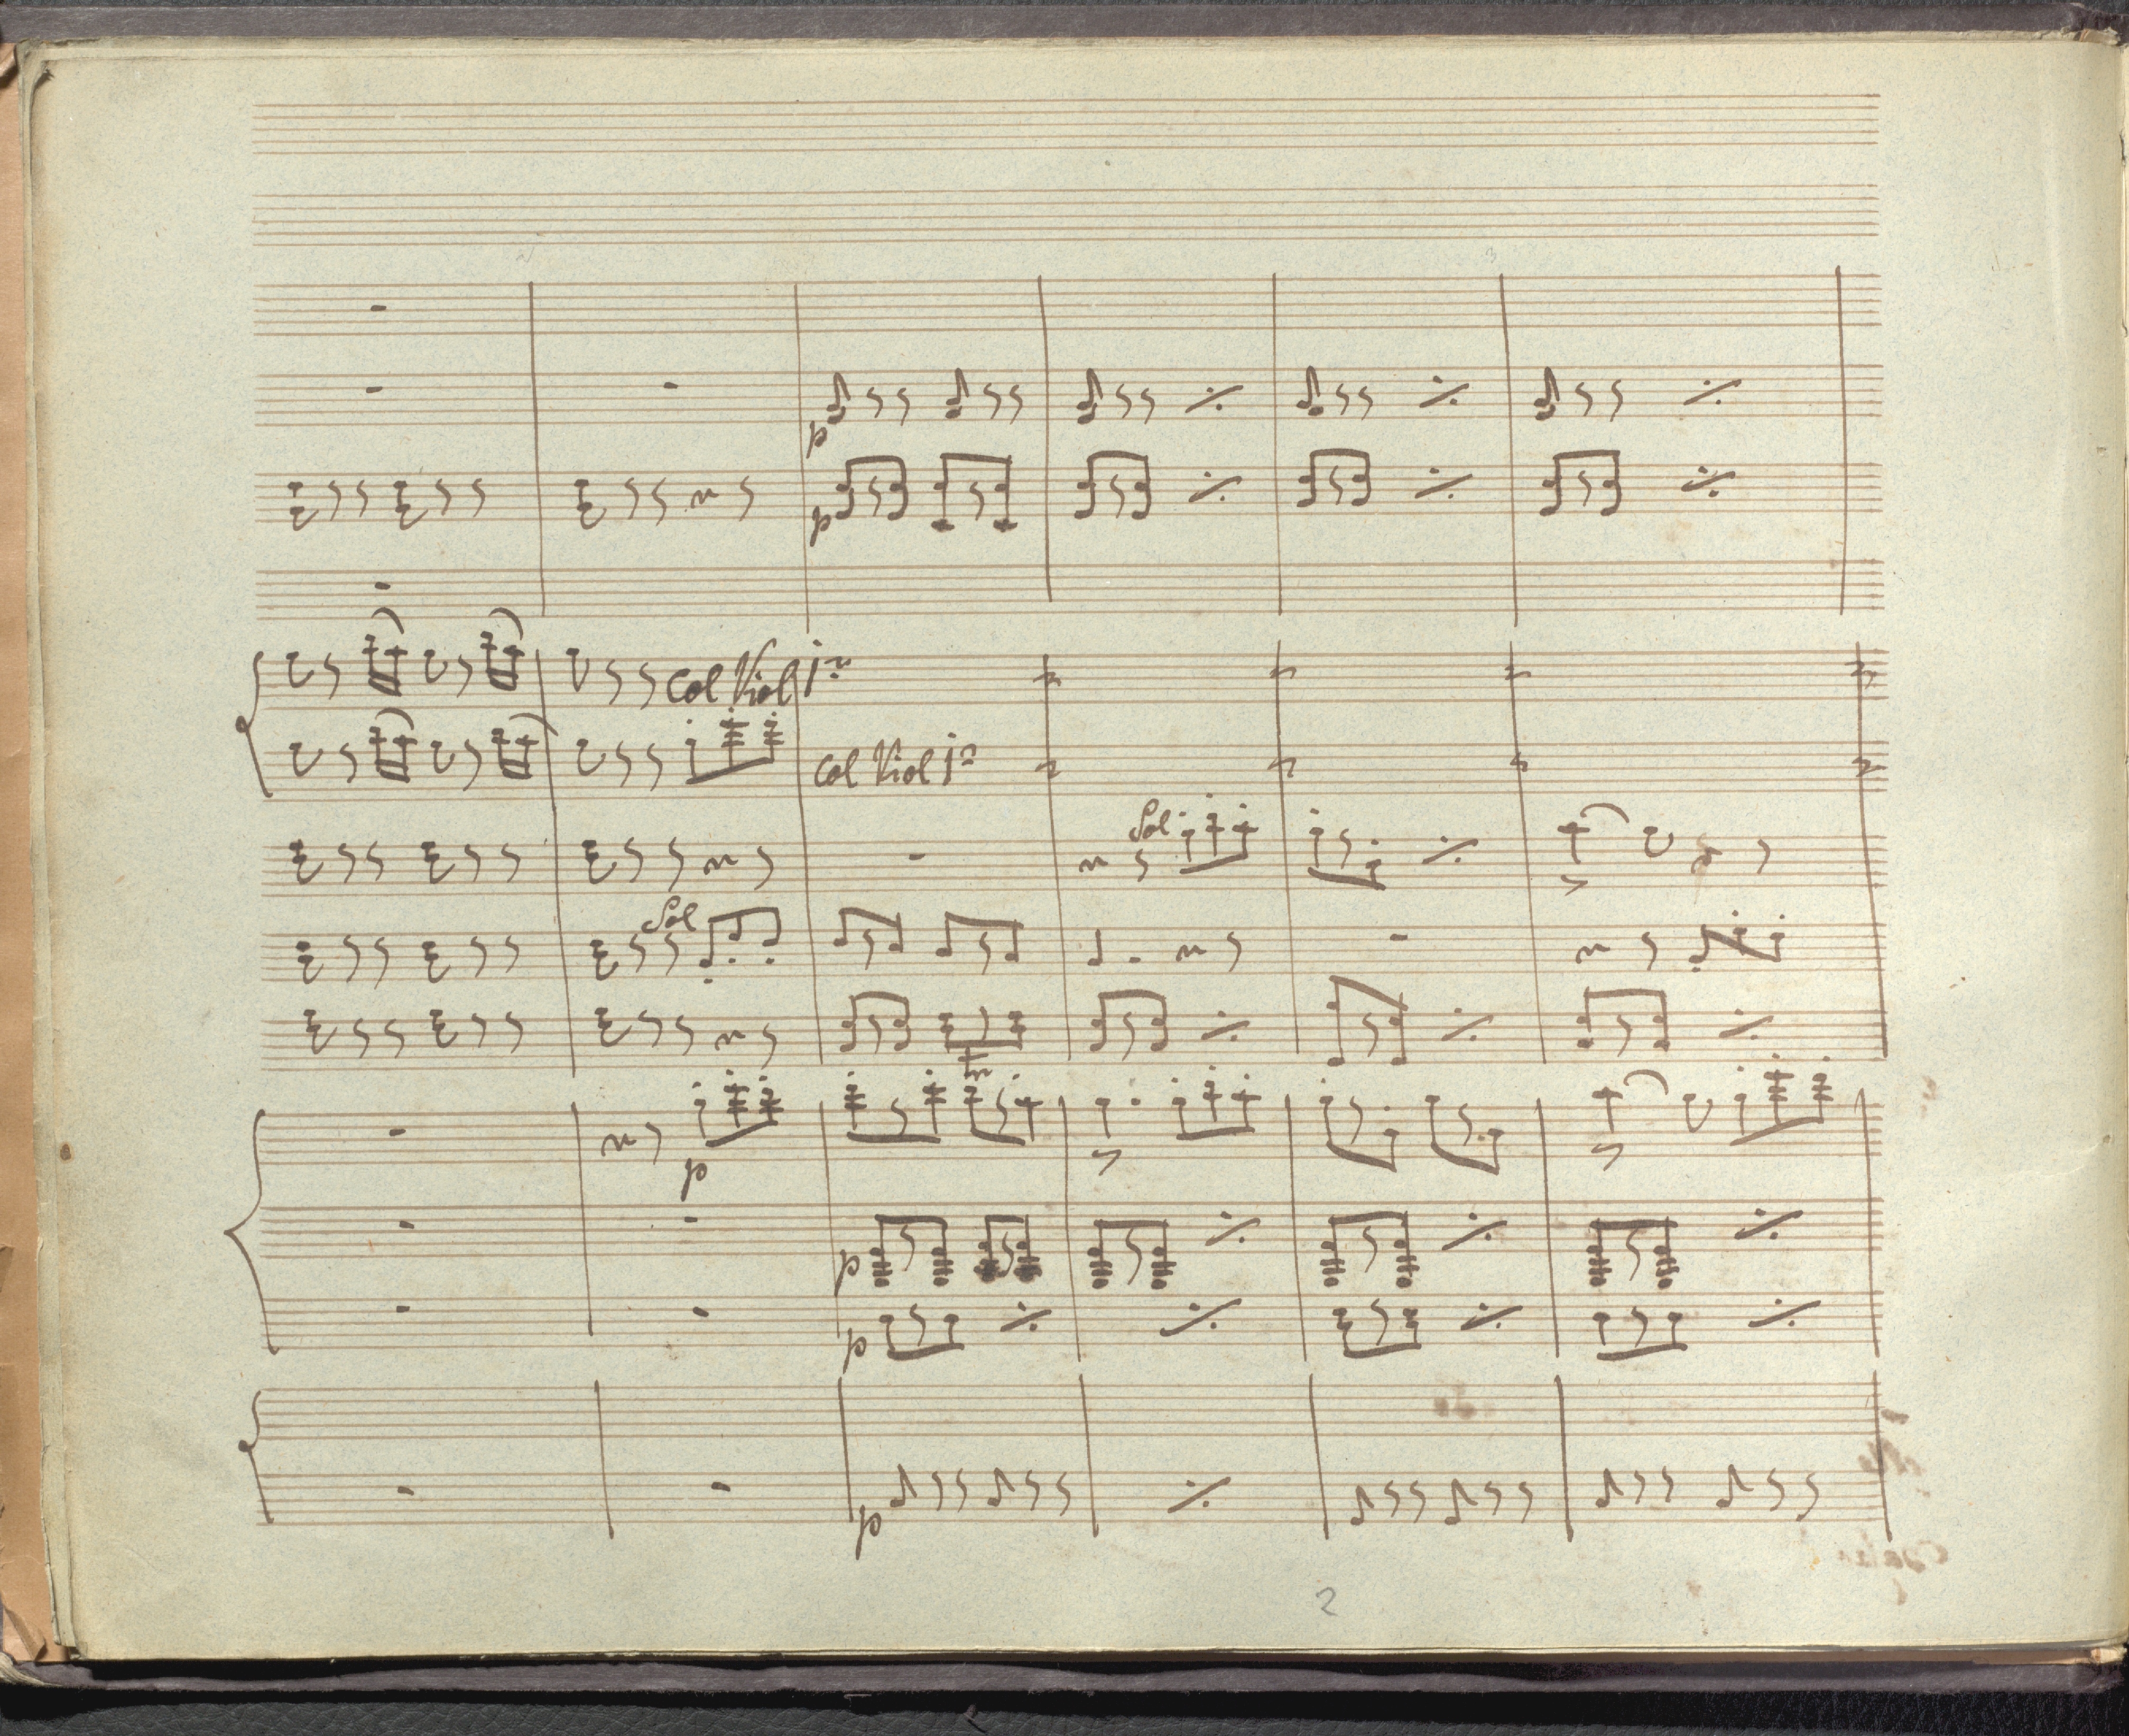 p
p
Col Viol 1º
Col Viol 1º
Sol
Sol
p
p
p
p
2